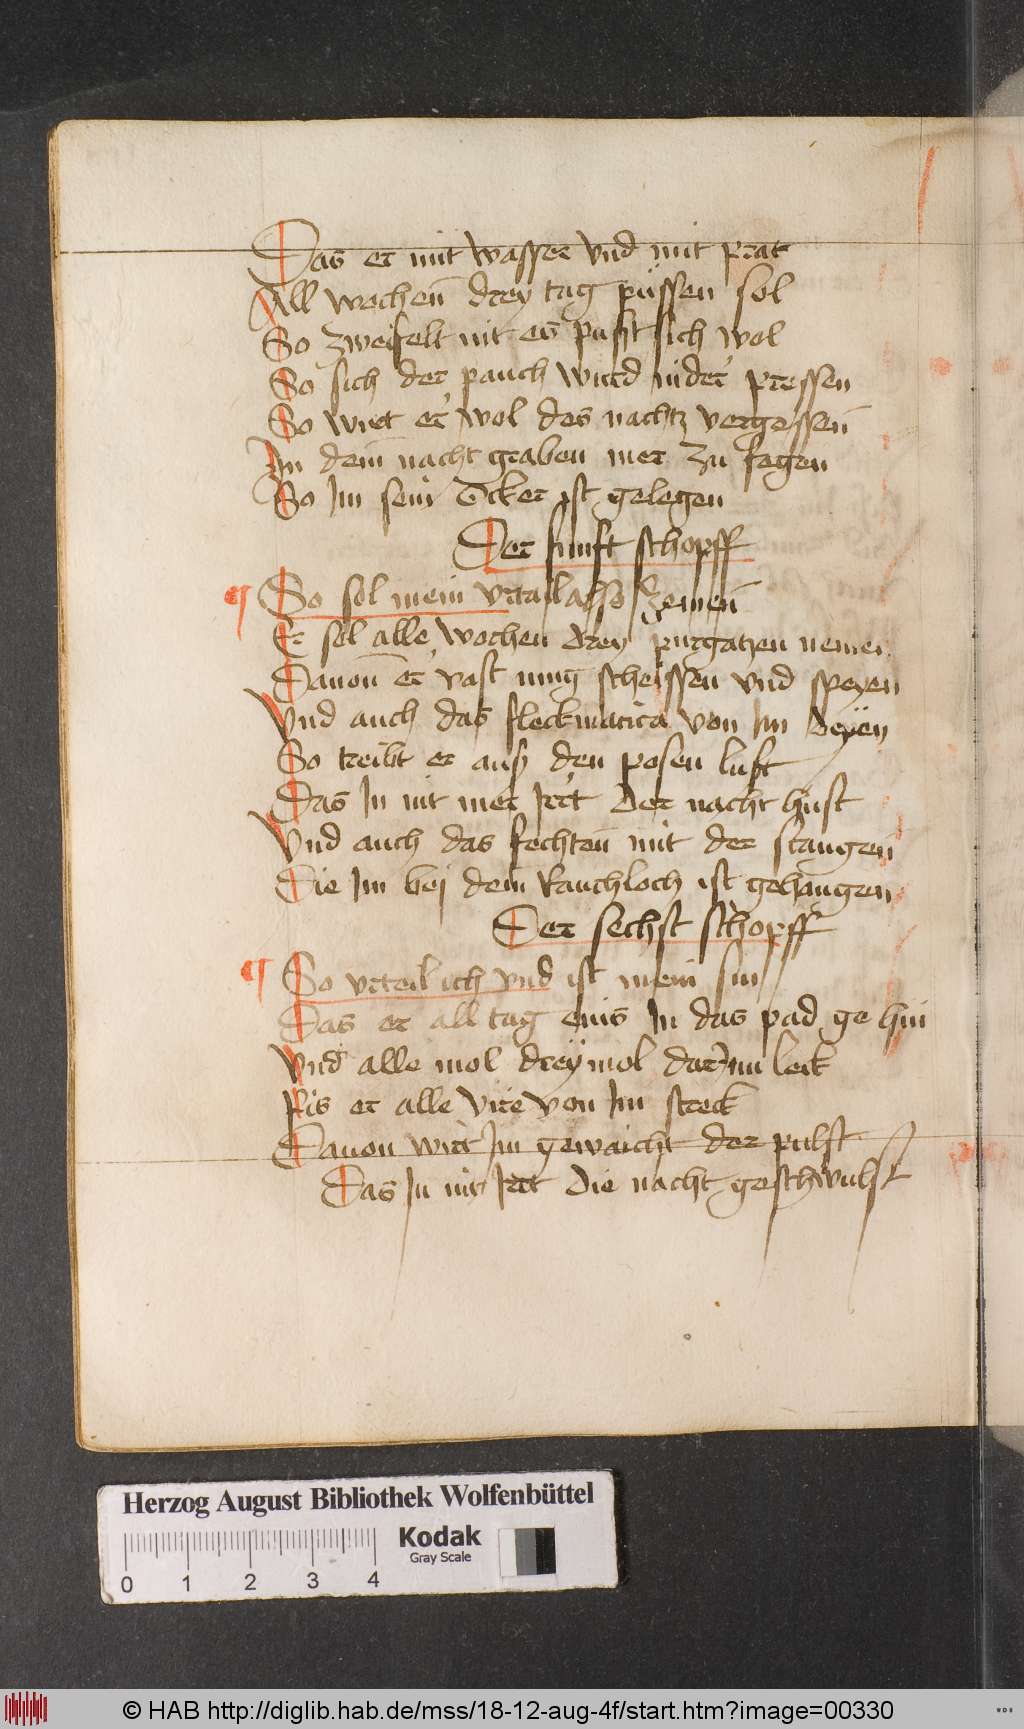 Das er mit wasser vnd mit prat
All wochen̄ drey tag püssen sol
So zweifelt nit es pust sich wol
So sich der pauch wurd nider pressen
So wirt er wol des nachtz vergessen̄
In dem̄ nacht graben mer zu fegen
So Im sein Acker ist gelegen
Der funft schopff
¶ So sol mein vrtail also zemen̄
Er sol alle wochen drey purgatzen nemen
Dauon̄ er vast mug scheissen vnd speyen
Vnd auch das fleckmatica von Im deyen
So treibt er auß den posen luft
Das In nit mer Irrt der nacht hust
Vnd auch das fechten̄ mit der stangen̄
Die Im bej dem̄ Rauchloch ist gehangen
Der sechst schopff
¶ So vrteil ich vnd ist mein sin
Das er all tag eins In das pad ge hin
Vnd alle mol dreymol dar Inn leck
Pis er alle vire von Im streck
Dauon wirt Im gewaicht der pulst
Das In nit Irrt die nacht geschwulst
Herzog August Bibliothek Wolfenbüttel
Kodak
Gray Scale
0 1 2 3 4
© HAB http://diglib.hab.de/mss/18-12-aug-4f/start.htm?image=00330